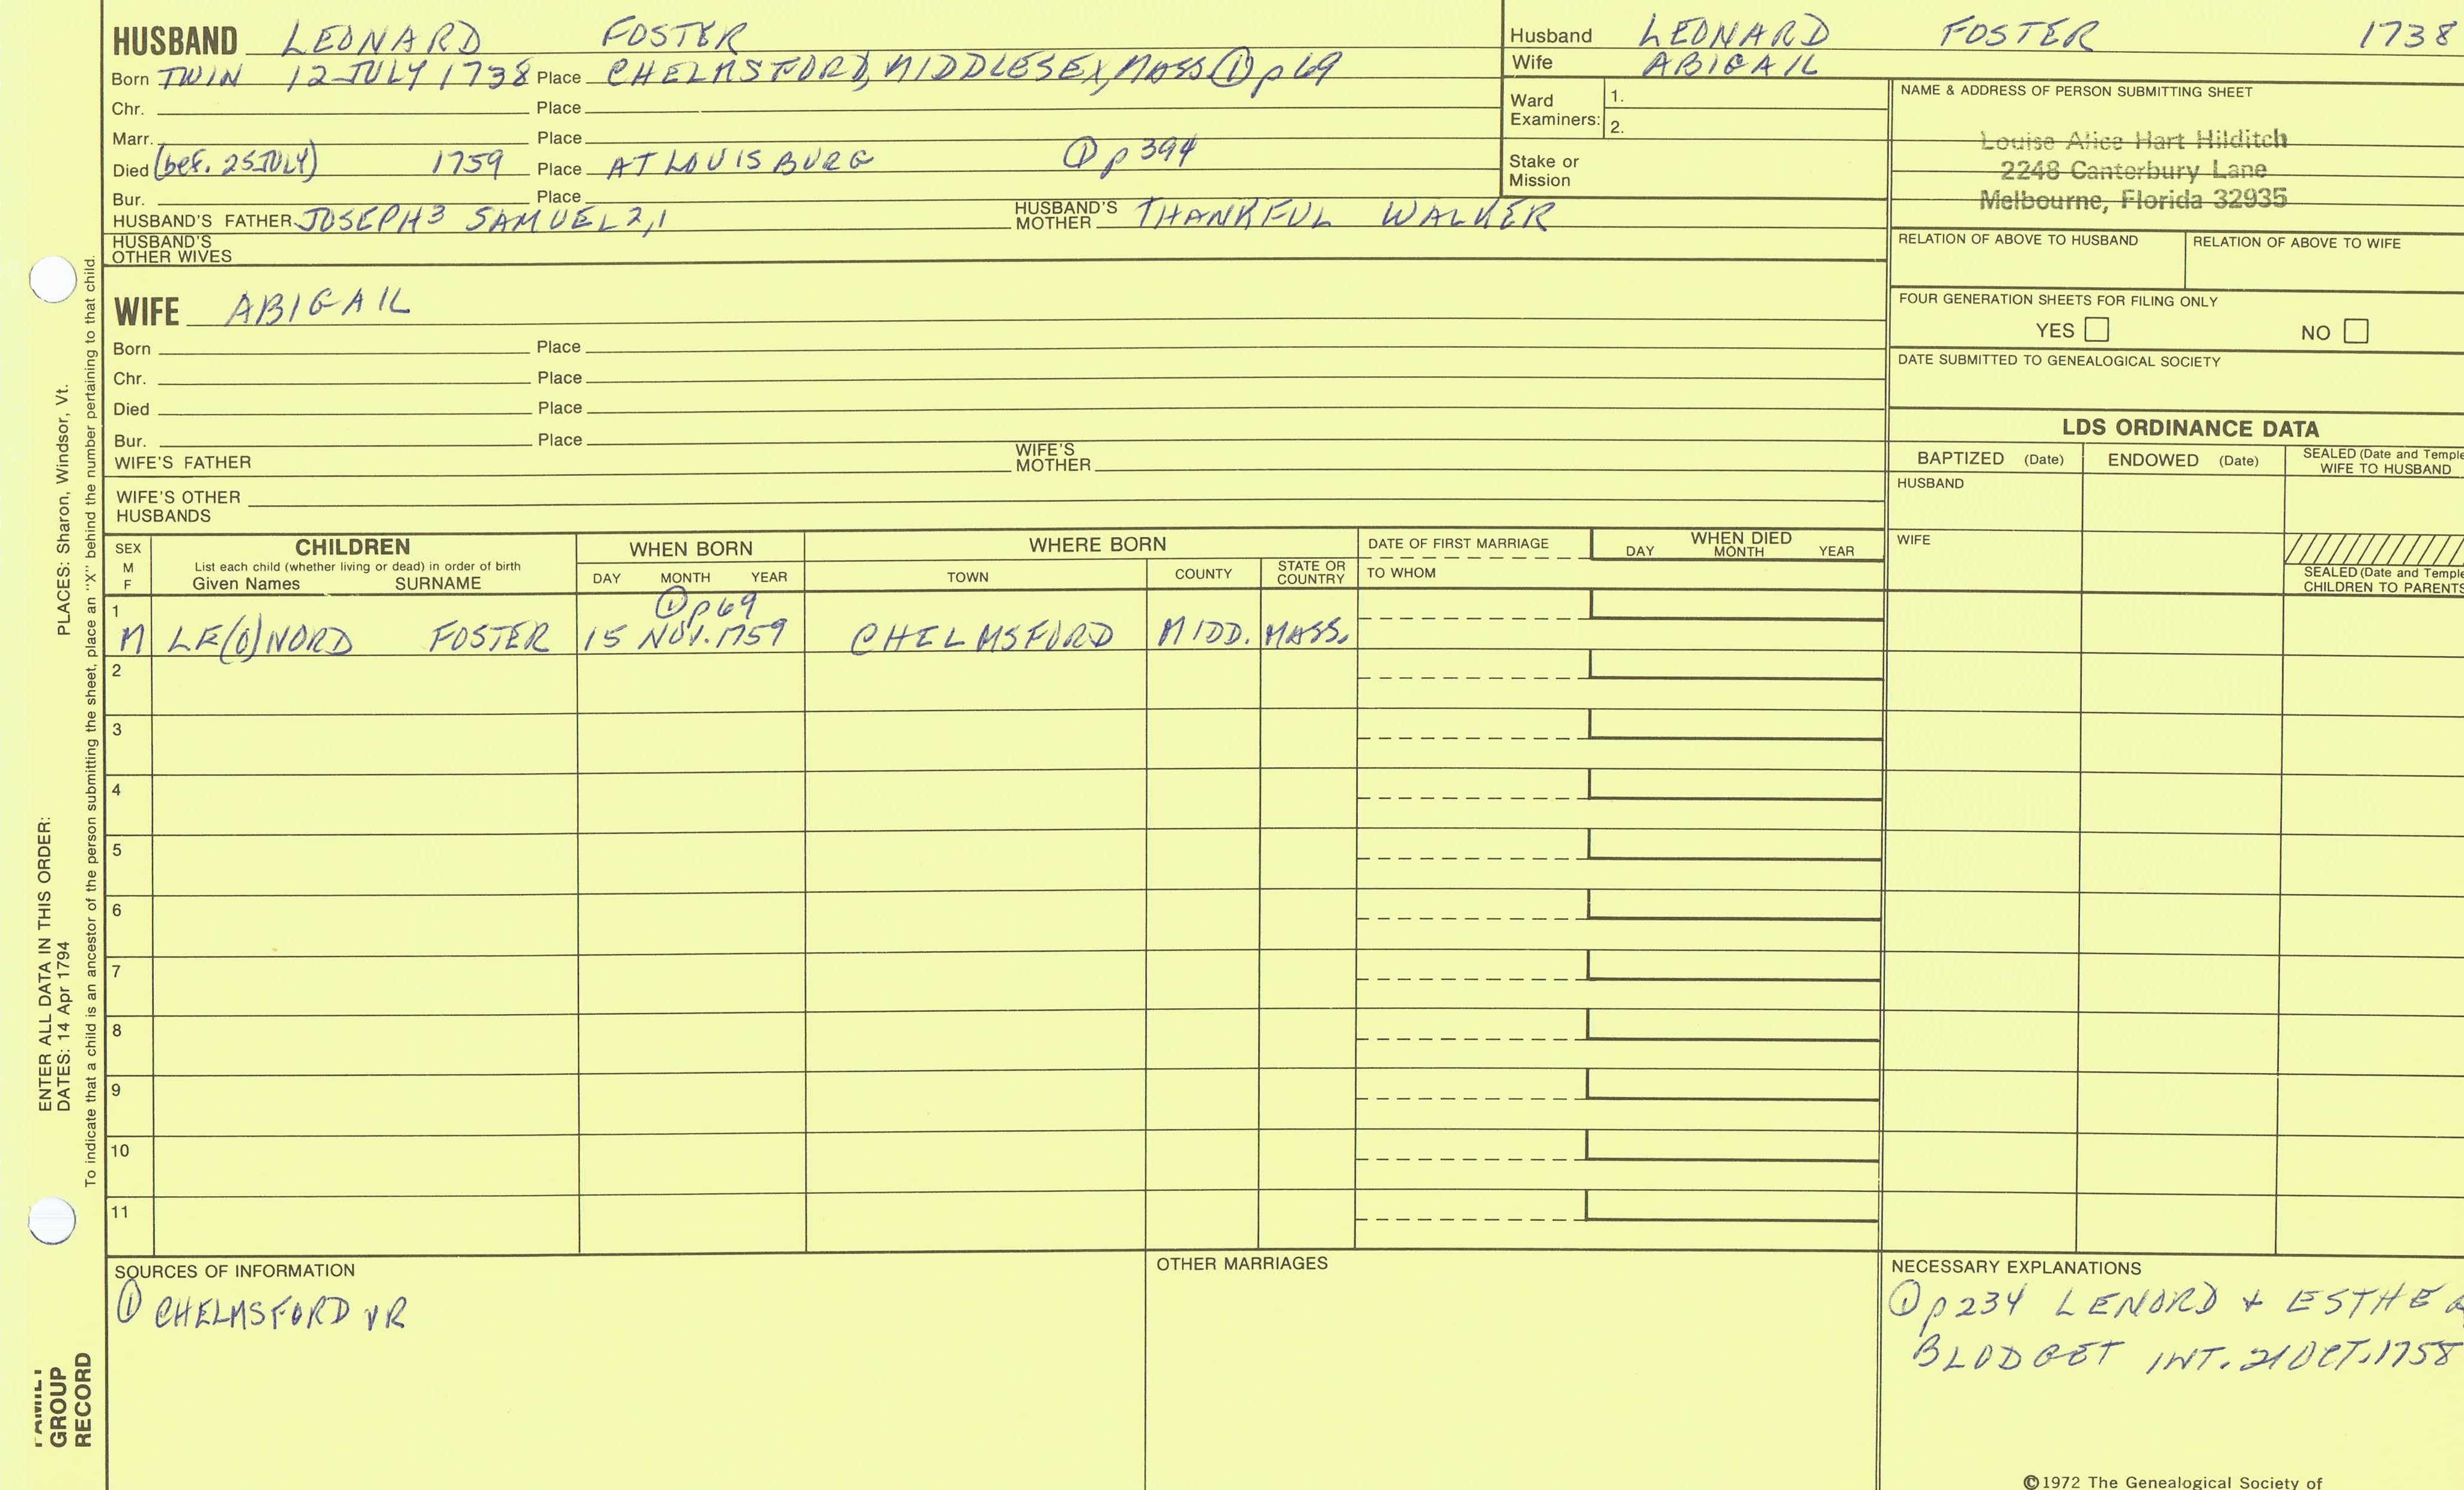 HUSBAND LEONARD FOSTER
Born TWIN 12 JULY 1738 Place CHELMSFORD, MIDDLESEX, MASS ① p 69
Chr. Place
Marr. Place
Died (bef. 25 JULY) 1759 Place AT LOUISBURG ① p 394
Bur. Place
HUSBAND'S FATHER JOSEPH3 SAMUEL 2,1 HUSBAND'S MOTHER THANKFUL WALKER
HUSBAND'S OTHER WIVES
Husband LEONARD FOSTER 1738
Wife ABIGAIL
Ward Examiners: 1.
2.
Stake or Mission
NAME & ADDRESS OF PERSON SUBMITTING SHEET
Louise Alice Hart Hilditch
2248 Canterbury Lane
Melbourne, Florida 32935
RELATION OF ABOVE TO HUSBAND RELATION OF ABOVE TO WIFE
FOUR GENERATION SHEETS FOR FILING ONLY
YES NO
DATE SUBMITTED TO GENEALOGICAL SOCIETY
WIFE ABIGAIL
Born Place
Chr. Place
Died Place
Bur. Place
WIFE'S FATHER WIFE'S MOTHER
WIFE'S OTHER HUSBANDS
LDS ORDINANCE DATA
BAPTIZED (Date) ENDOWED (Date) SEALED (Date and Temple
WIFE TO HUSBAND
HUSBAND
WIFE
SEALED (Date and Temple
CHILDREN TO PARENTS
SEX M F CHILDREN WHEN BORN WHERE BORN DATE OF FIRST MARRIAGE WHEN DIED
List each child (whether living or dead) in order of birth
Given Names SURNAME DAY MONTH YEAR TOWN COUNTY STATE OR COUNTRY TO WHOM DAY MONTH YEAR
1 ① p 69
M LE(O)NORD FOSTER 15 NOV. 1759 CHELMSFORD MIDD. MASS.
2
3
4
5
6
7
8
9
10
11
SOURCES OF INFORMATION
① CHELMSFORD VR
OTHER MARRIAGES
NECESSARY EXPLANATIONS
① p 234 LENORD + ESTHER
BLODGET INT. 21 OCT. 1758
©1972 The Genealogical Society of
PLACES: Sharon, Windsor, Vt.
ENTER ALL DATA IN THIS ORDER:
DATES: 14 Apr 1794
To indicate that a child is an ancestor of the person submitting the sheet, place an "X" behind the number pertaining to that child.
FAMILY
GROUP
RECORD